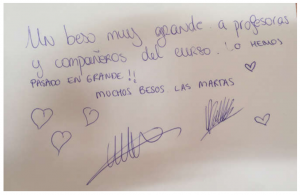 Un beso muy grande a profesoras
y compañeros del curso. Lo hemos
PASADO EN GRANDE!!
MUCHOS BESOS. LAS MARTAS